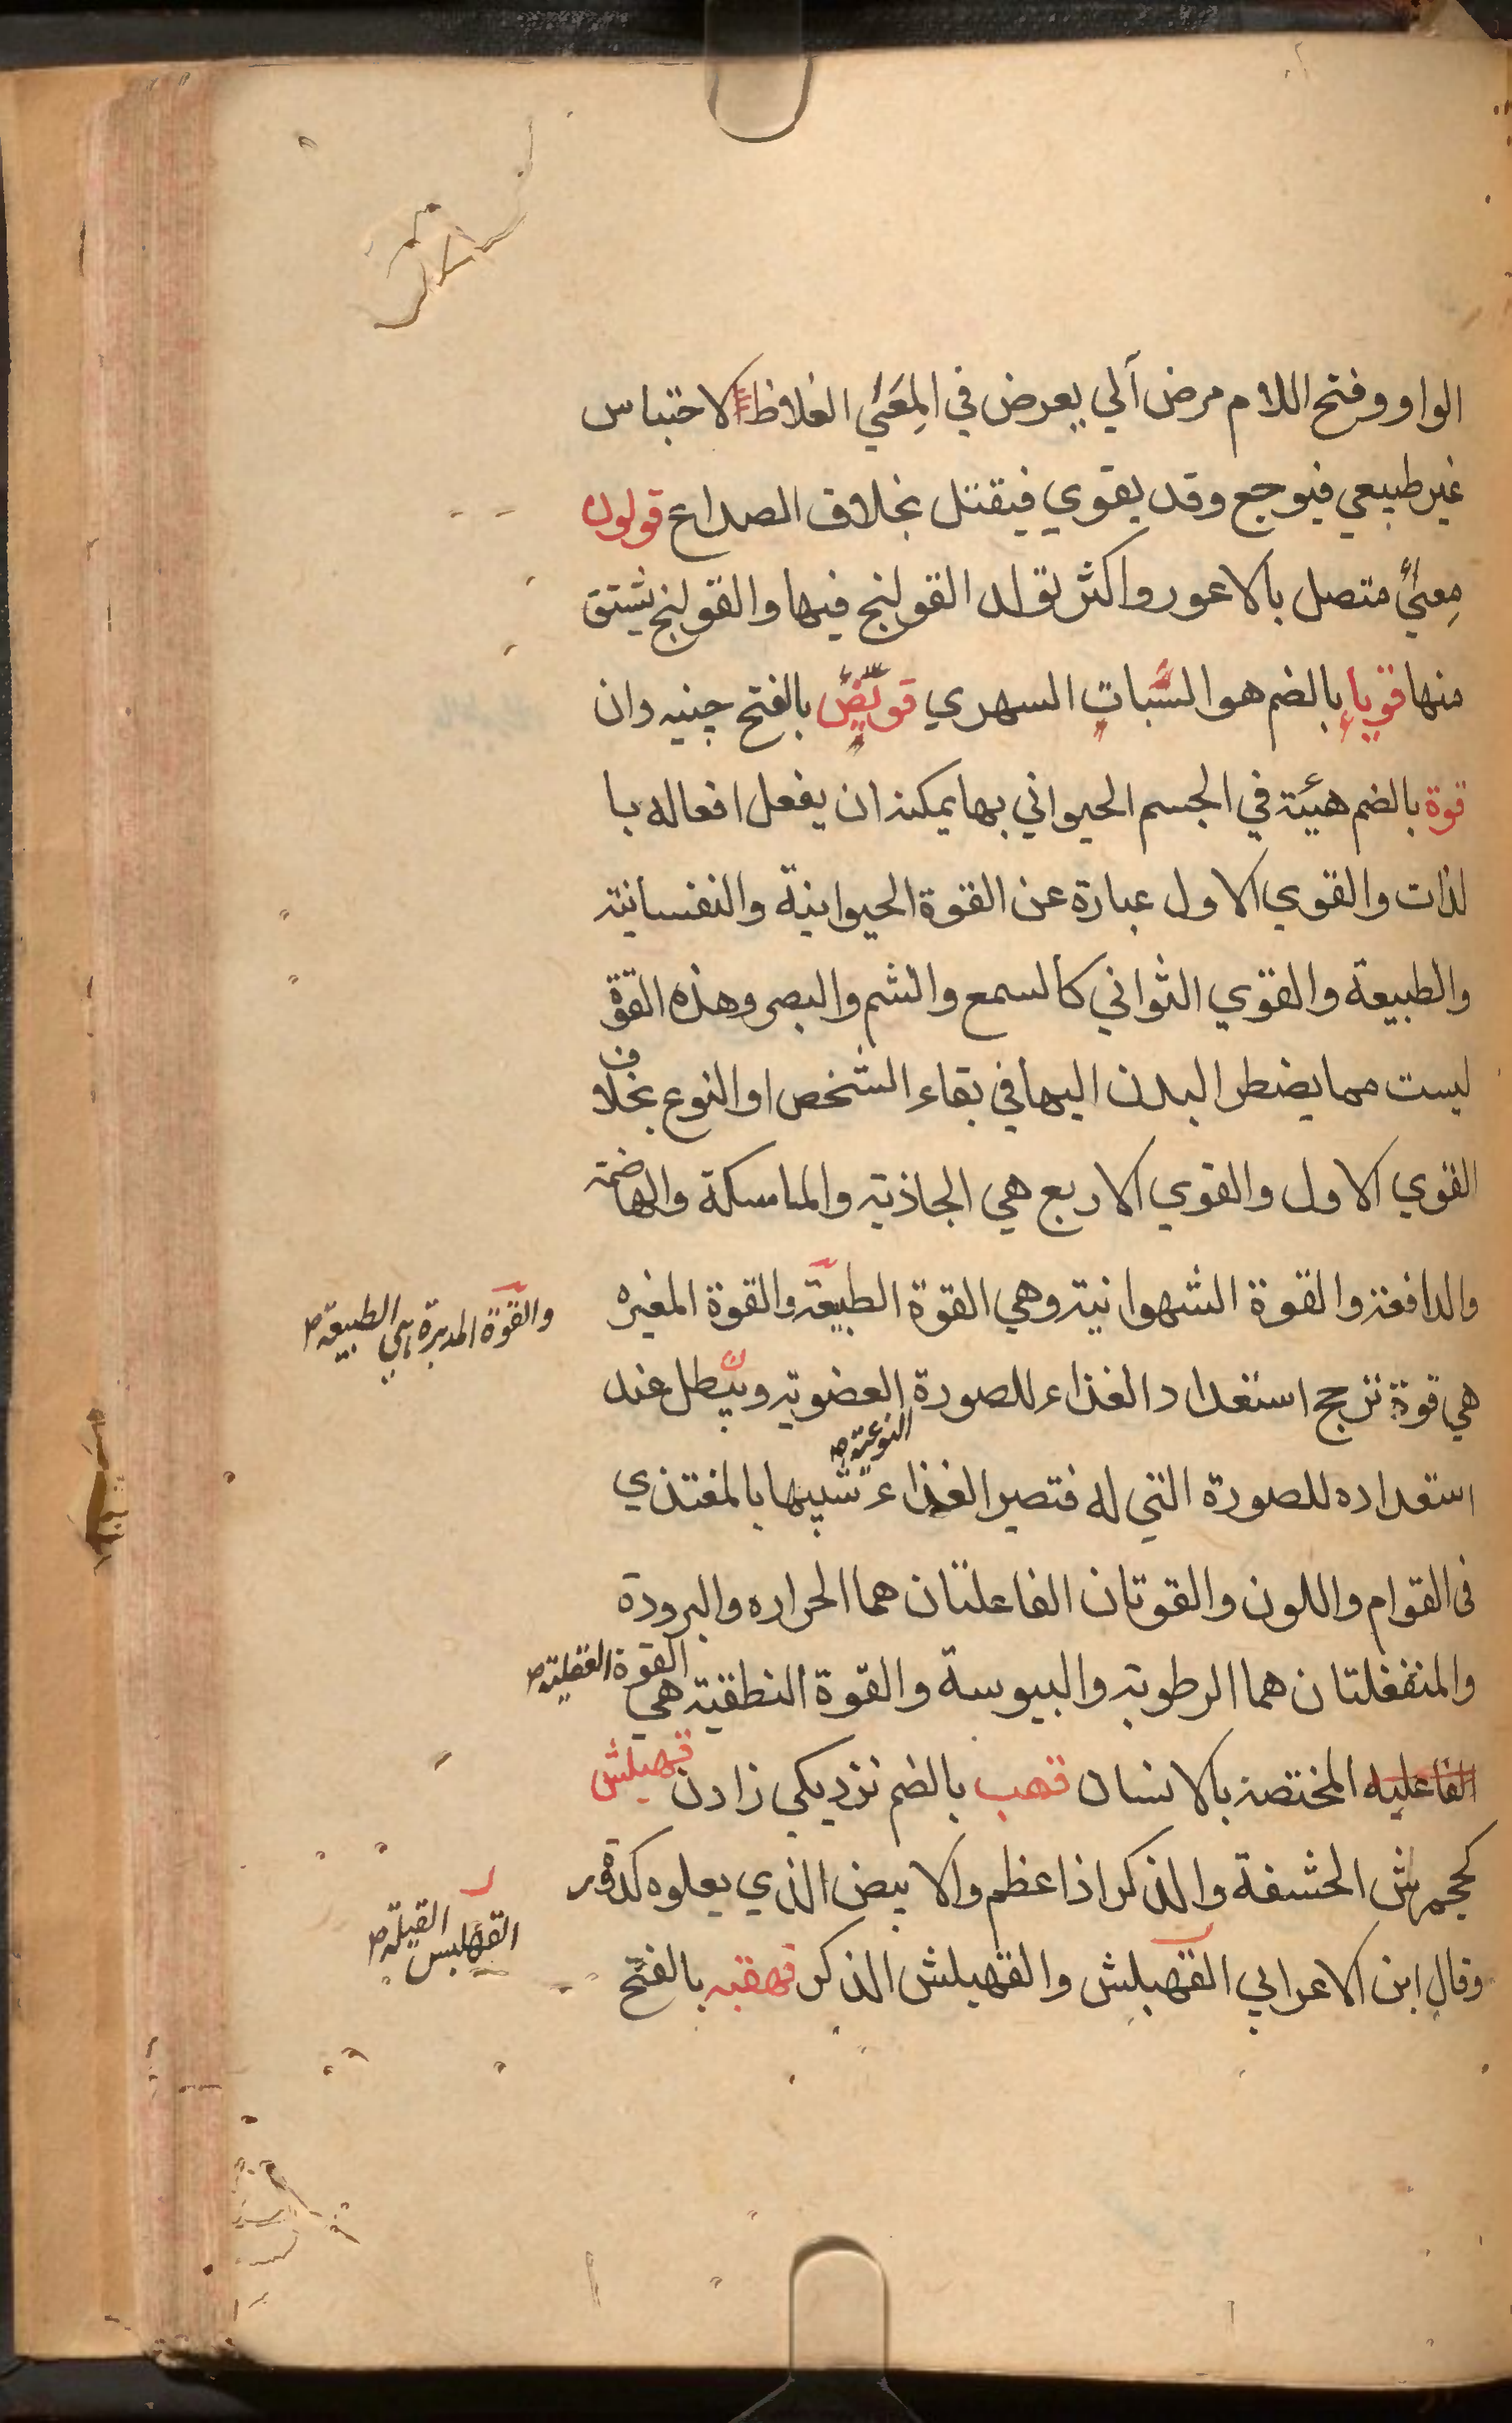 الواو وفتح اللام مرض آلي يعرض في المِعَئي الغلاظ لاحتباس
غير طبيعي فيوجع وقد يقوي فيقتل بخلاف الصداع قولون
مِعئيٌ متصل بالاعور واكثر تولد القولنج فيها والقولنج يشتق
منها قوباء بالضم هو السُّبات السهري قوبّضٌ بالفتح چنيه دان
قوة بالضم هيئة في الجسم الحيواني بها يمكنه ان يفعل افعاله با
لذات والقوي الاول عبارة عن القوة الحيوانية والنفسانية
والطبيعة والقوي الثواني كالسمع والشم والبصر وهذه القوة
ليست مما يضطر البدن اليها في بقاء الشخص او النوع بخلاف
القوي الاول والقوي الاربع هي الجاذبة والماسكة والهاضمة
والدافعة والقوة الشهوانية وهي القوة الطبيعة والقوة المغيره
والقوّة المدبرة هي الطبيعة ص
هي قوة ترجح استعداد الغذاء للصورة العضوية ويبطل عند
النوعية ص
استعداده للصورة التي له فتصير الغذاء شبيها بالمغتذي
في القوام واللون والقوتان الفاعلتان هما الحراره والبرودة
والمنفعلتان هما الرطوبة واليبوسة والقوة النطقية هي القوة العقلية ص
الفاعليه المختصة بالانسان قهب بالضم نزديكي زادن قهبلش
كجحمرش الحشفة والذكر اذا عظم والابيض الذي يعلوه كدورة
القهبلس القيلة ص
وقال ابن الاعرابي القهبلش والقهبلش الذكر قهقبه بالفتح